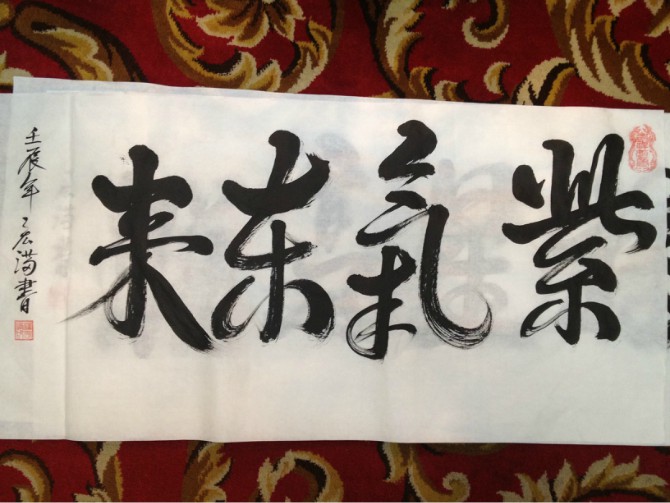 紫氣东来
壬辰年
宏满書